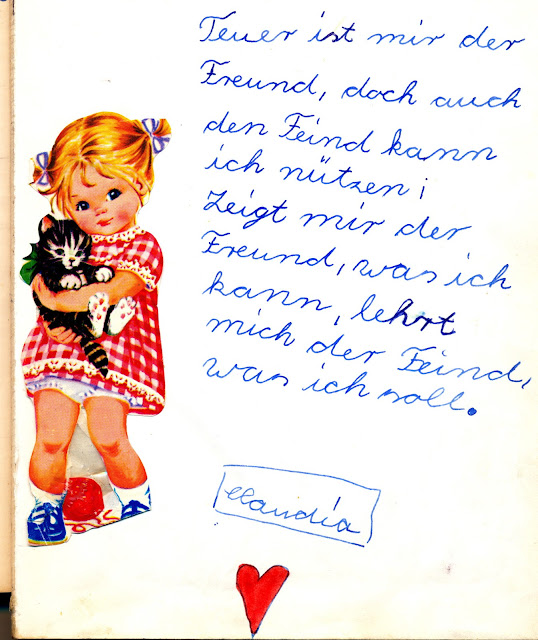 Teuer ist mir der
Freund, doch auch
den Feind kann
ich nützen;
Zeigt mir der
Freund, was ich
kann, lehrt
mich der Feind,
was ich soll.
Claudia